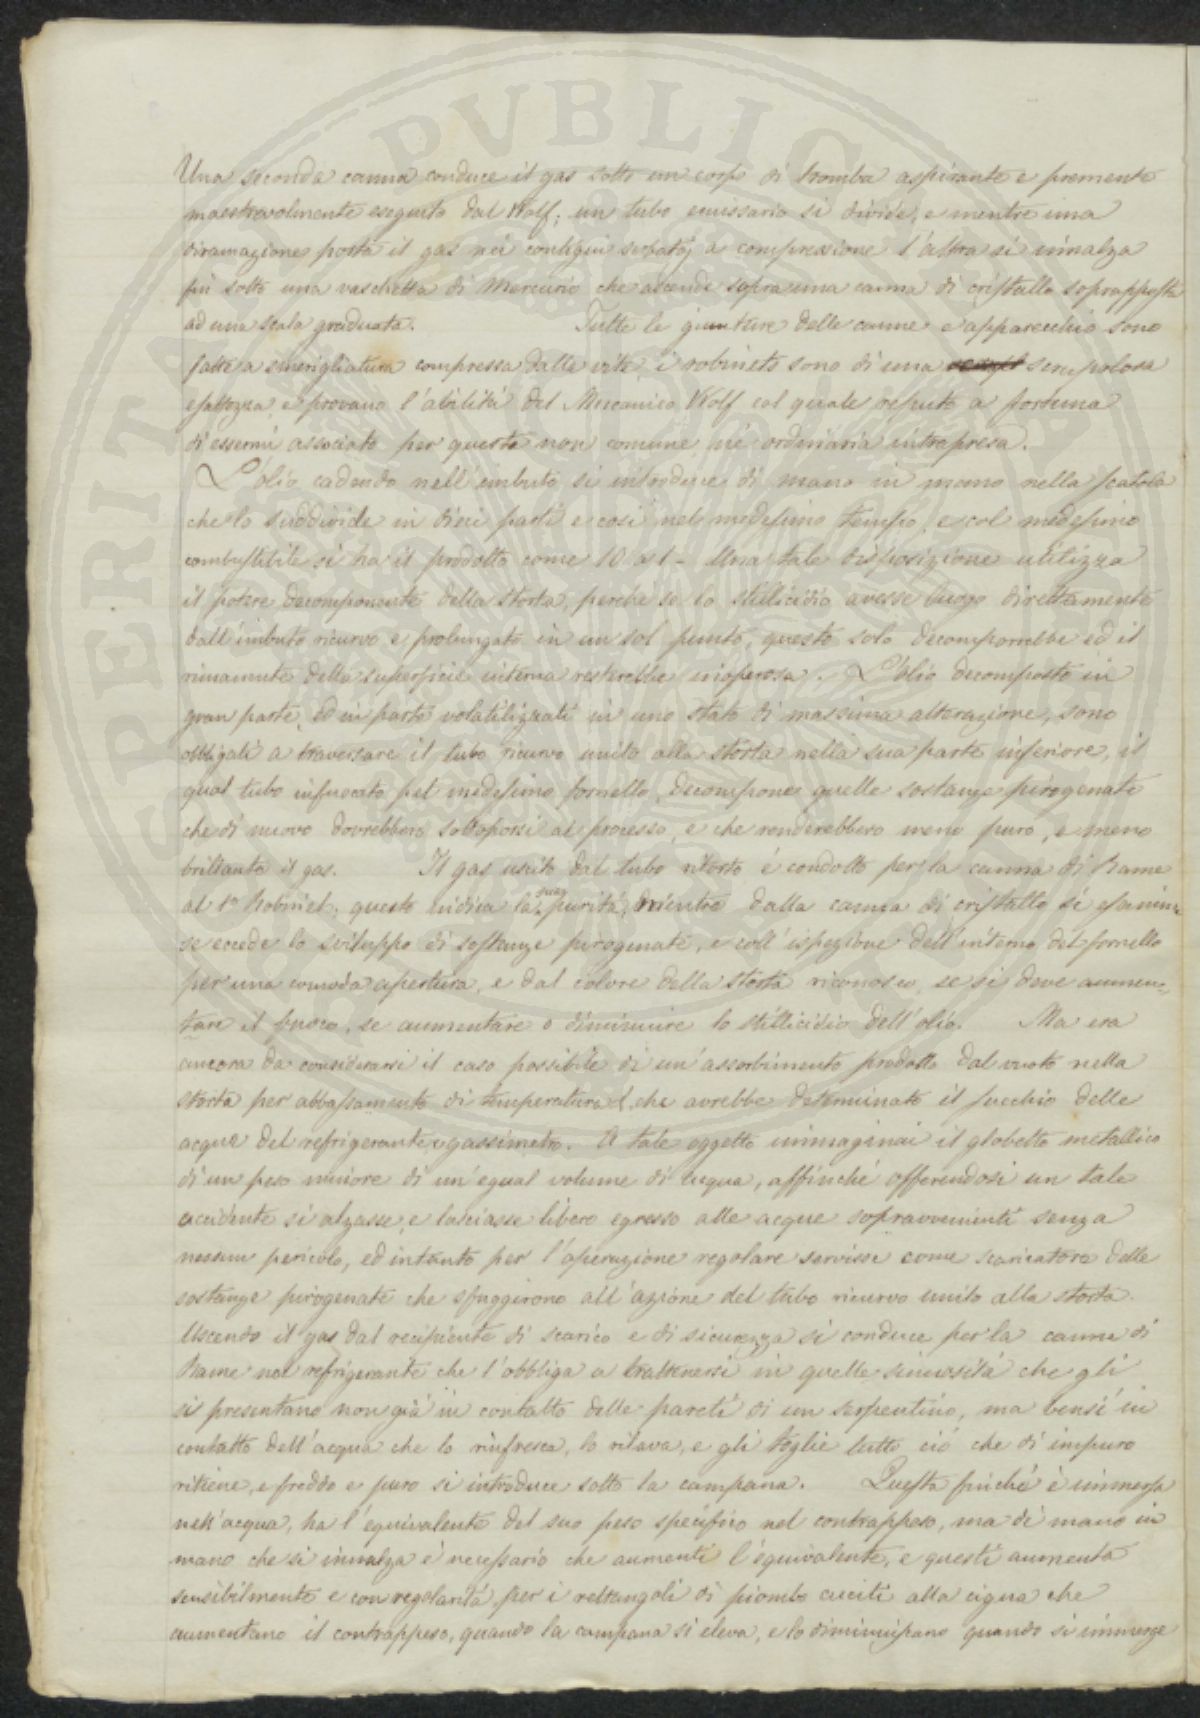 Una seconda canna conduce il gas sotto un corpo di tromba aspirante e premente
maestrevolmente eseguito dal Wolf; un tubo emissario si divide, e mentre una
diramazione porta il gas nei contigui serbatoj a compressione l'altra si innalza
fin sotto una vaschetta di Mercurio che ascende sopra una canna di cristallo soprapposta
ad una scala graduata. Tutte le giunture delle canne e apparecchio sono
fatte a smerigliatura compressa dalle viti i robinets sono di una scrupolosa
esattezza, e provano l'abilità del Mecanico Wolf col quale reputo a fortuna
di essermi associato per questa non comune, nè ordinaria intrapresa.
L'olio cadendo nell'imbuto si introduce di mano in mano nella scatola
che lo suddivide in dieci parti e così nel medesimo tempo, e col medesimo
combustibile si ha il prodotto come 10 a 1 - Una tale disposizione utilizza
il potere decomponente della storta, perchè se lo stillicidio avesse luogo direttamente
dall'imbuto ricurvo e prolungato in un sol punto, questo solo decomporrebbe ed il
rimanente della superficie interna resterebbe inoperosa. L'olio decomposto in
gran parte, ed in parte volatilizzati in uno stato di massima alterazione, sono
obbligati a traversare il tubo ricurvo unito alla storta nella sua parte inferiore, il
qual tubo infuocato pel medesimo fornello, decompone quelle sostanze pirogenate
che di nuovo dovrebbero sottoporsi al processo, e che renderebbero meno puro, e meno
brillante il gas. Il gas uscito dal tubo ritorto é condotto per la canna di Rame
al 1º Robinet, questo indica la sua purità, mentre dalla canna di cristallo si esamina
se eccede lo sviluppo di sostanze pirogenate, e coll'ispezione dell'interno del fornello
per una comoda apertura, e dal colore della storta riconosco, se si deve aumen-
tare il fuoco, se aumentare o diminuire lo stillicidio dell'olio. Ma era
ancora da considerarsi il caso possibile di un'assorbimento prodotto dal vuoto nella
storta per abbassamento di temperatura, che avrebbe determinato il succhio delle
acque del refrigerante, e gassimetro. A tale oggetto immaginai il globetto metallico
di un peso minore di un'egual volume di acqua, affinché offerendosi un tale
accidente si alzasse, e lasciasse libero egresso alle acque sopravvenienti senza
nessun pericolo, ed intanto per l'operazione regolare servisse come scaricatore delle
sostanze pirogenate che sfuggirono all'azione del tubo ricurvo unito alla storta.
Uscendo il gas dal recipiente di scarico e di sicurezza si conduce per la canna di
Rame nel refrigerante che l'obbliga a trattenersi in quelle sinuosità che gli
si presentano non già in contatto delle pareti di un serpentino, ma bensì in
contatto dell'acqua che lo rinfresca, lo rilava, e gli toglie tutto ciò che di impuro
ritiene, e freddo e puro si introduce sotto la campana. Questa finchè è immersa
nell'acqua, ha l'equivalente del suo peso specifico nel contrappeso, ma di mano in
mano che si innalza é necessario che aumenti l'equivalente, e questi aumenta
sensibilmente e con regolarità, per i rettangoli di piombo cuciti alla cigna che
aumentano il contrappeso, quando la campana si eleva, e lo diminuiscono quando si immerge